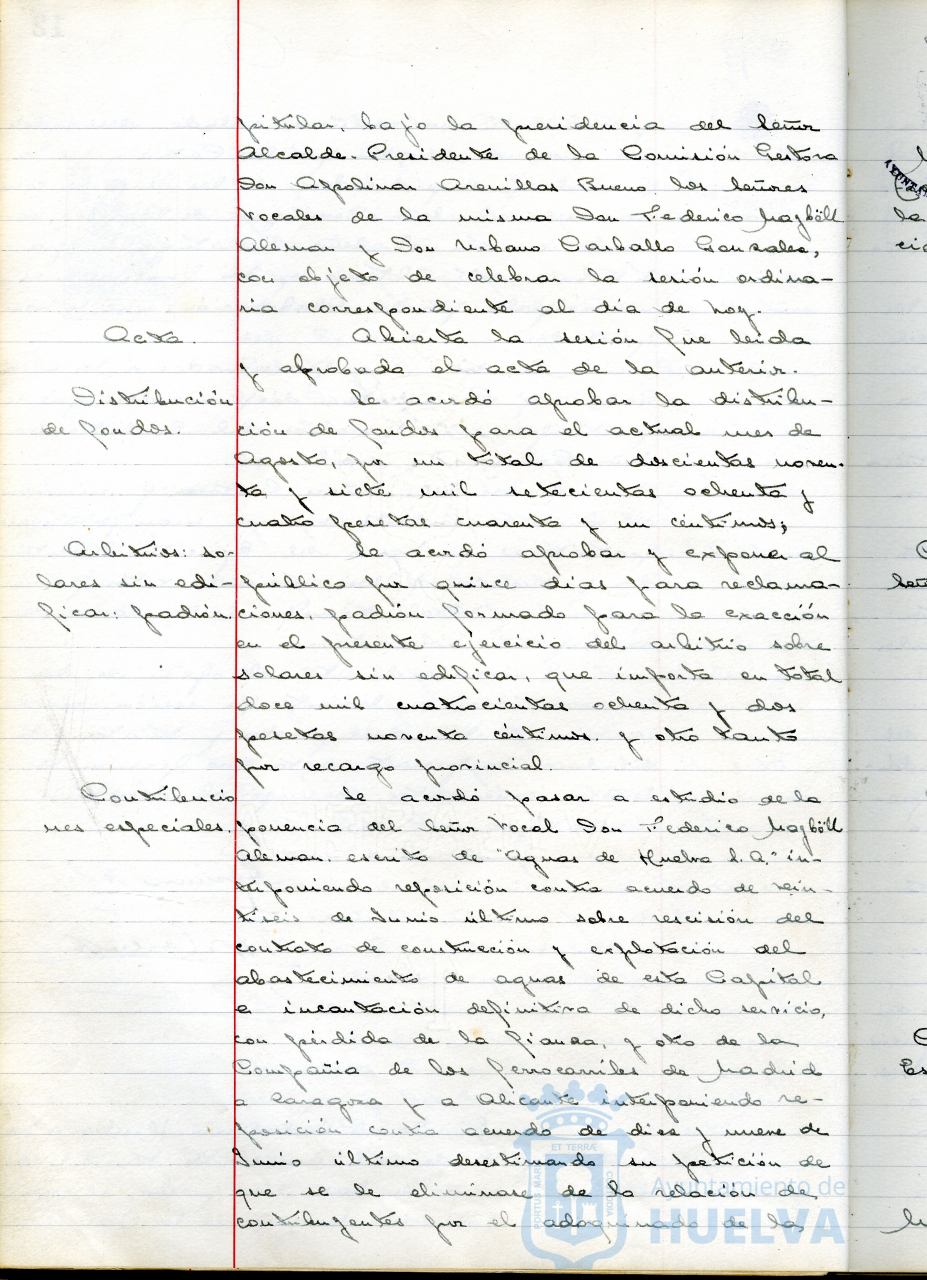 pitular, bajo la presidencia del Señor
Alcalde-Presidente de la Comisión Gestora
Don Apolinar Arenillas Bueno los Señores
Vocales de la misma Don Federico Mayböll
Aleman y Don Urbano Carballo Gonzalez,
con objeto de celebrar la sesión ordina-
ria correspondiente al día de hoy.
Acta. Abierta la sesión fue leida
y aprobada el acta de la anterior.
Distribución Se acordó aprobar la distribu-
de fondos. ción de fondos para el actual mes de
Agosto, por un total de doscientas noven-
ta y siete mil setecientas ochenta y
cuatro pesetas cuarenta y un céntimos;
Arbitrios: so- Se acordó aprobar y exponer al
lares sin edi- público por quince días para reclama-
ficar: padrón. ciones, padrón formado para la exacción
en el presente ejercicio del arbitrio sobre
solares sin edificar, que importa en total
doce mil cuatrocientas ochenta y dos
pesetas noventa céntimos. y otro tanto
por recargo provincial.
Contribucio Se acordó pasar a estudio de la
nes especiales. ponencia del Señor Vocal Don Federico Mayböll
Aleman, escrito de "Aguas de Huelva S.A." in-
terponiendo reposición contra acuerdo de vein-
tiseis de Junio último sobre rescisión del
contrato de construcción y explotación del
abastecimiento de aguas de esta Capital
e incautación definitiva de dicho servicio,
con pérdida de la fianza, y otro de la
Compañia de los ferrocarriles de Madrid
a Zaragoza y a Alicante interponiendo re-
posición contra acuerdo de diez y nueve de
Junio último desestimando su petición de
que se le eliminase de la relación de
contribuyentes por el adoquinado de la
ET TERRÆ
PORTUS MARIS
CUSTODIA
Ayuntamiento de
HUELVA